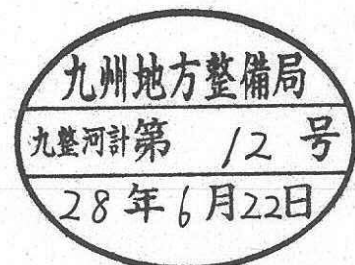 九州地方整備局
九整河計第 12 号
28年6月22日